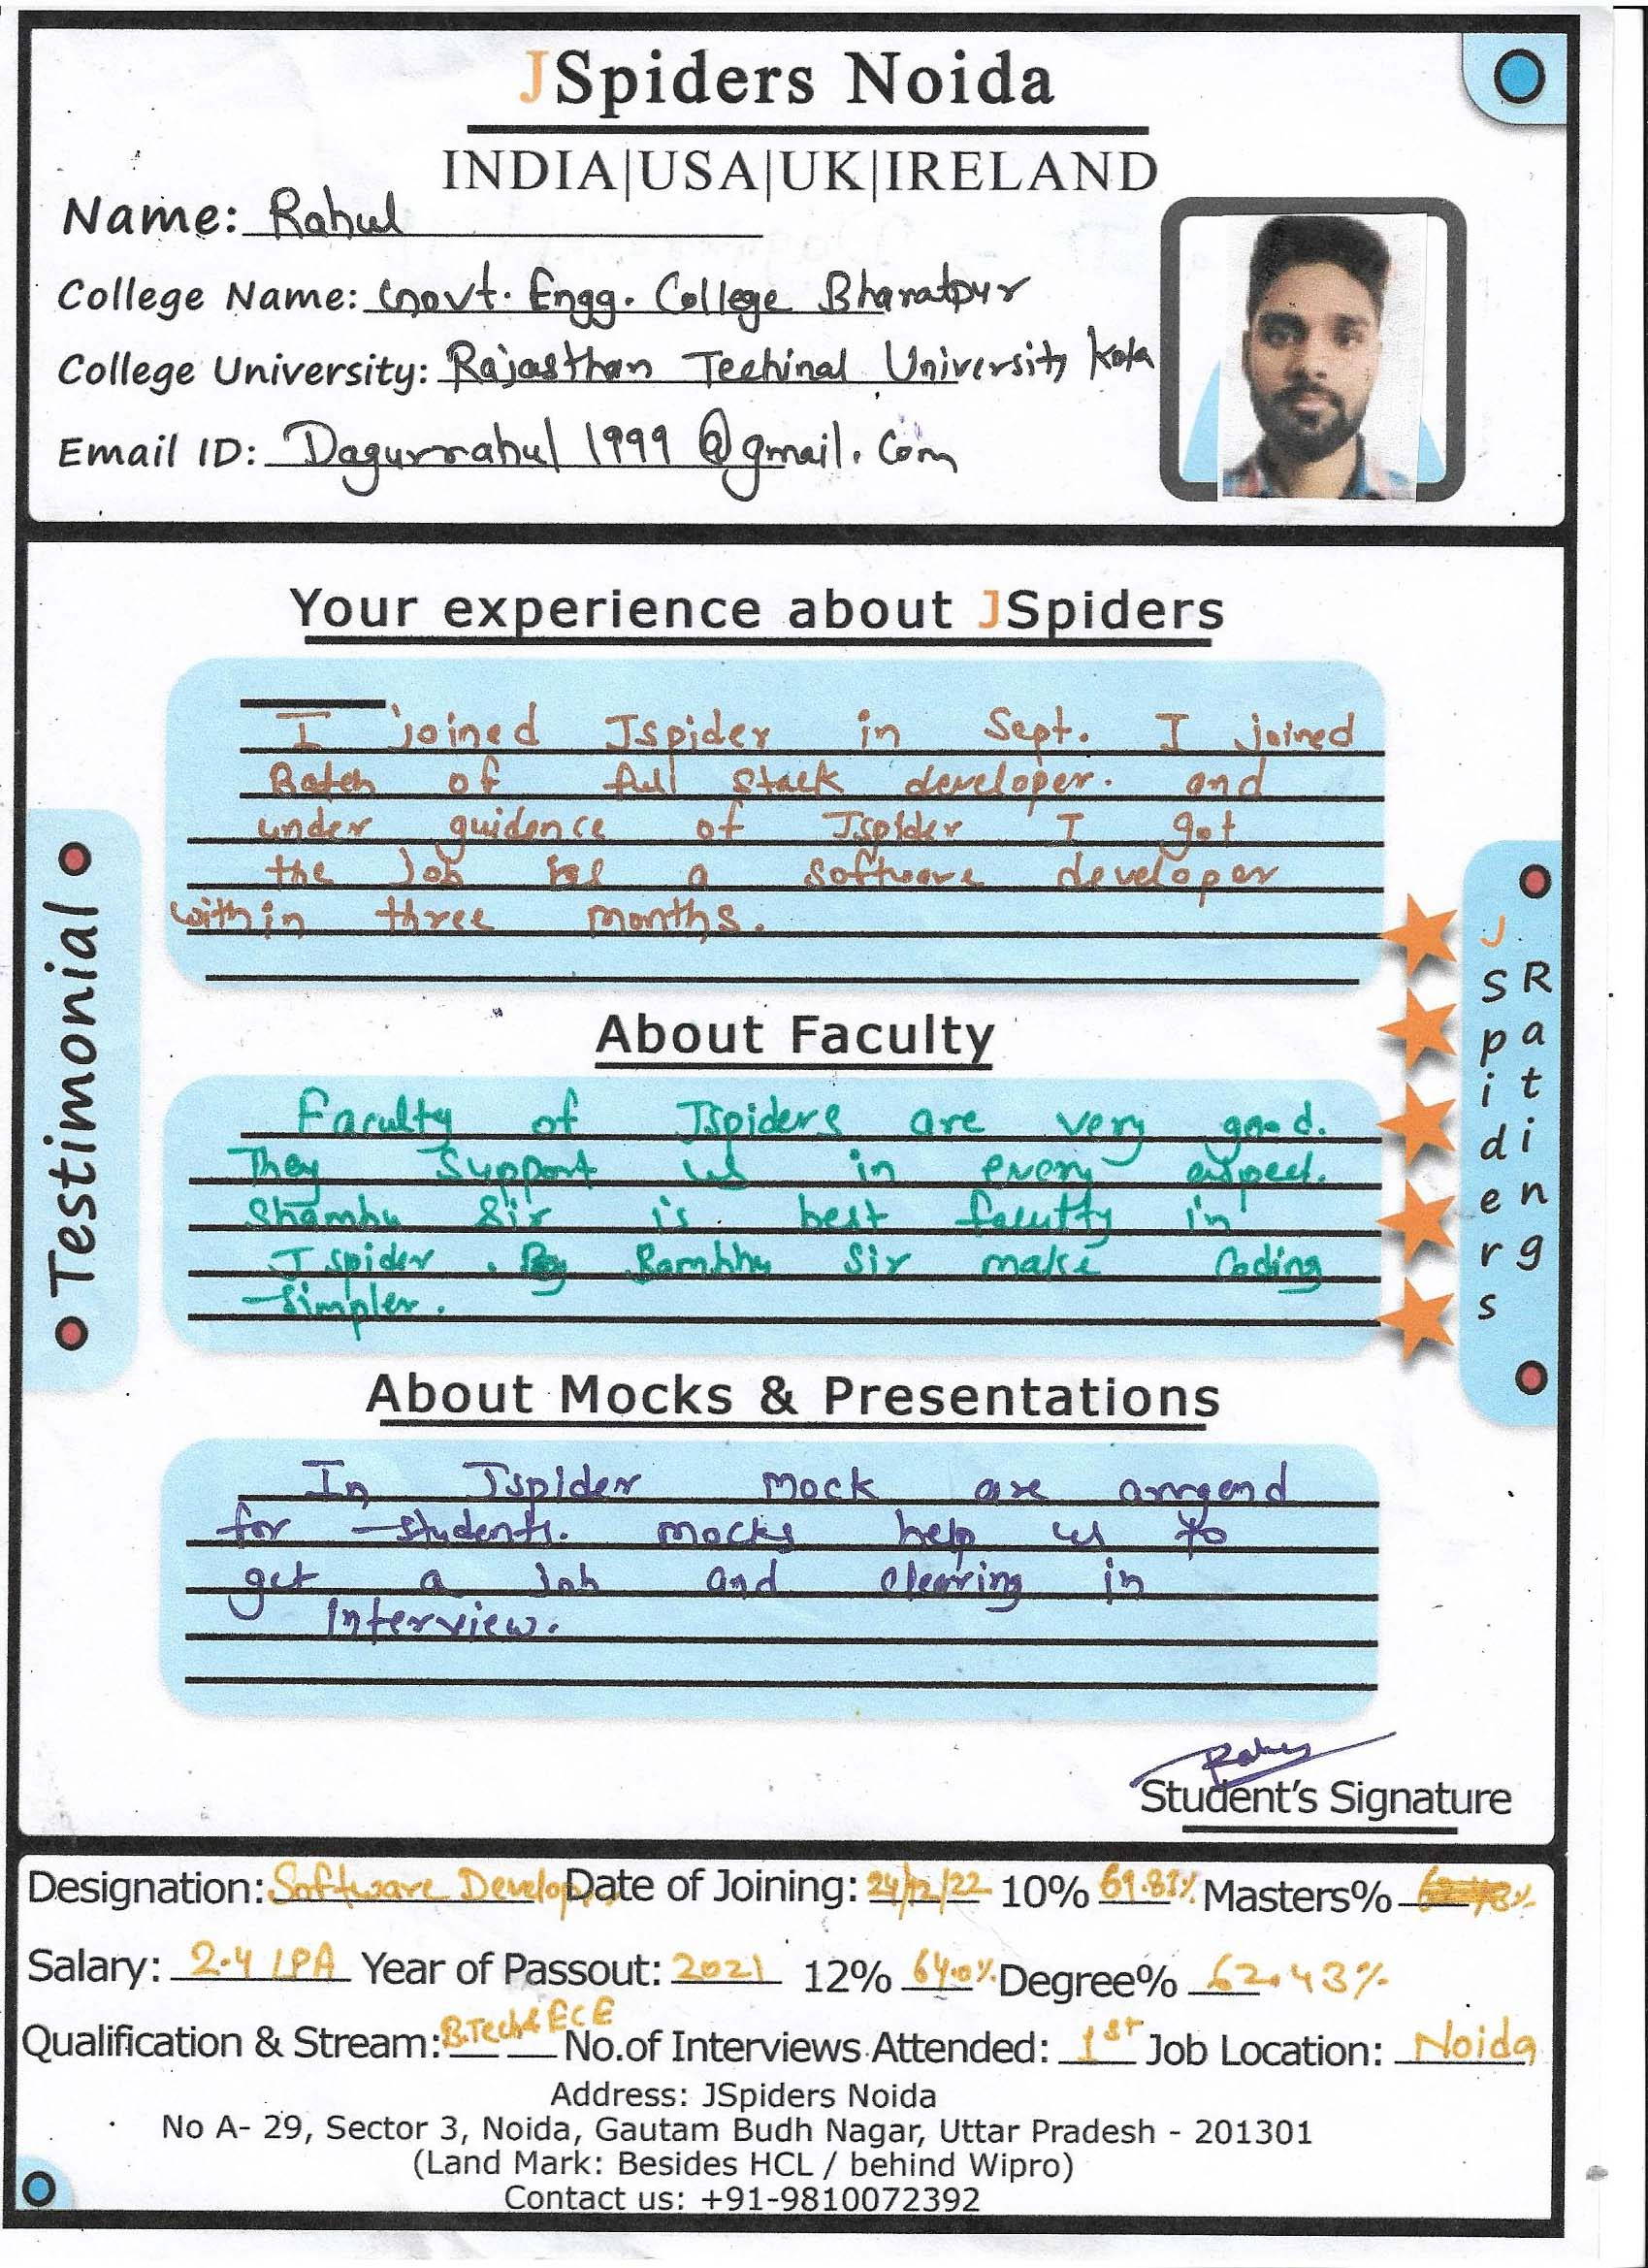 JSpiders Noida
INDIA|USA|UK|IRELAND
Name: Rahul
College Name: Govt. Engg. College Bharatpur
College University: Rajasthan Techinal University Kota
Email ID: Dagurrahul1999@gmail.com
Your experience about JSpiders
I joined Jspider in Sept. I joined
Batch of full stack developer. and
under guidence of Jspider I got
the Job as a software developer
within three months.
About Faculty
Faculty of Jspiders are very good.
They Support us in every aspect.
Shambhu Sir is best faculty in
Jspider. Sir make Coding
Simpler.
About Mocks & Presentations
In Jspider mock are
for students. mocks help us to
get a Job and clearing in
Interview.
Testimonial
JSpiders
Rating
Student's Signature
Designation: Software Developer Date of Joining: 24/12/22 10% 69.83% Masters%
Salary: 2.4 LPA Year of Passout: 2021 12% 64.0% Degree% 62.43%
Qualification & Stream: B.Tech & ECE No.of Interviews Attended: 1st Job Location: Noida
Address: JSpiders Noida
No A- 29, Sector 3, Noida, Gautam Budh Nagar, Uttar Pradesh - 201301
(Land Mark: Besides HCL / behind Wipro)
Contact us: +91-9810072392